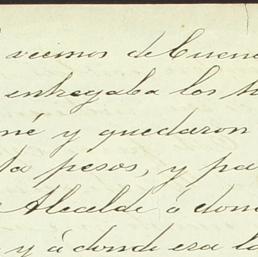 vecinos de Cuen
entregaba los
né y quedaron
ta pesos, y pa
Alcalde á don
y á donde era la